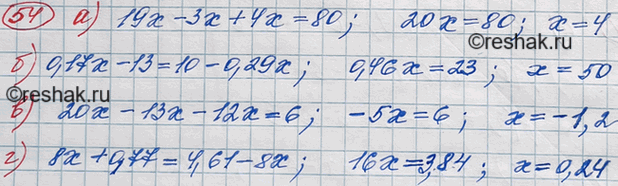 54 а) 19x - 3x + 4x = 80; 20x = 80; x = 4
б) 0,17x - 13 = 10 - 0,29x; 0,46x = 23; x = 50
в) 20x - 13x - 12x = 6; -5x = 6; x = -1,2
г) 8x + 0,77 = 4,61 - 8x; 16x = 3,84; x = 0,24